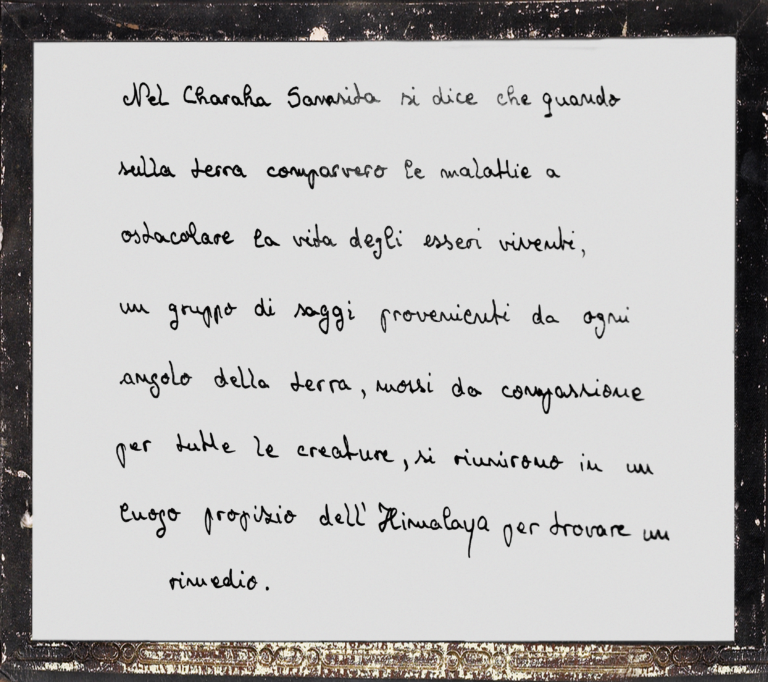 Nel Charaka Samhita si dice che quando
sulla terra comparvero le malattie a
ostacolare la vita degli esseri viventi,
un gruppo di saggi provenienti da ogni
angolo della terra, mossi da compassione
per tutte le creature, si riunirono in un
luogo propizio dell'Himalaya per trovare un
rimedio.